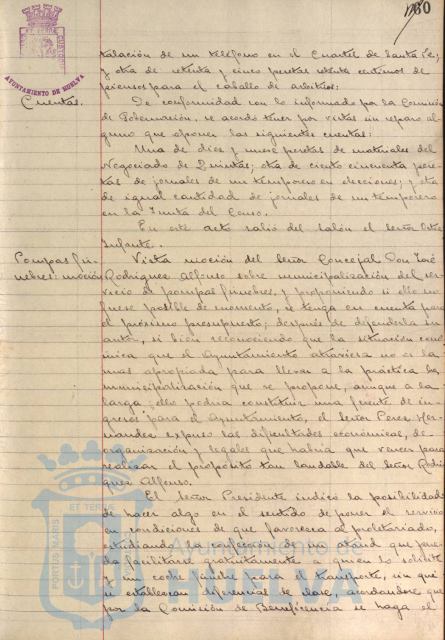 160
AYUNTAMIENTO DE HUELVA
talación de un teléfono en el Cuartel de Santa Fe;
y otra de setenta y cinco pesetas setenta centimos de
piensos para el caballo de arbitrios:
Cuentas. De conformidad con lo informado por la Comisión
de Gobernación, se acordó tener por vistas sin reparo al-
guno que oponer las siguientes cuentas:
Una de diez y nueve pesetas de materiales del
Negociado de Quintas; otra de ciento cincuenta pese-
tas de jornales de un temporero en elecciones; y otra
de igual cantidad de jornales de un temporero
en la Junta del Censo.
En este acto salió del salón el señor Ortiz
Infante.
Pompas fú-
nebres: moción
Vista moción del señor Concejal Don José
Rodriguez Alfonso sobre municipalización del ser-
vicio de pompas fúnebres, y proponiendo si ello no
fuese posible de momento, se tenga en cuenta para
el próximo presupuesto; después de defenderla su
autor, si bien reconociendo que la situación eco-
nómica que el Ayuntamiento atraviesa no es la
mas apropiada para llevar a la práctica la
municipalización que se propone, aunque a la
larga ello podria constituir una fuente de in-
gresos para el Ayuntamiento, el señor Perez Her-
nandez expuso las dificultades económicas, de
organización y legales que habria que vencer para
realizar el propósito tan laudable del señor Rodri-
guez Alfonso.
El señor Presidente indicó la posibilidad
de hacer algo en el sentido de poner el servicio
en condiciones de que favorezca al proletariado,
estudiando la confección de un ataud que pue-
da facilitarse gratuitamente a quien lo solicite
y un coche fúnebre para el transporte, sin que
se establezcan diferencias de clase, acordandose que
por la Comisión de Beneficencia se haga el
PORTUS MARIS ET TERRAE CUSTODIA
Ayuntamiento de
HUELVA